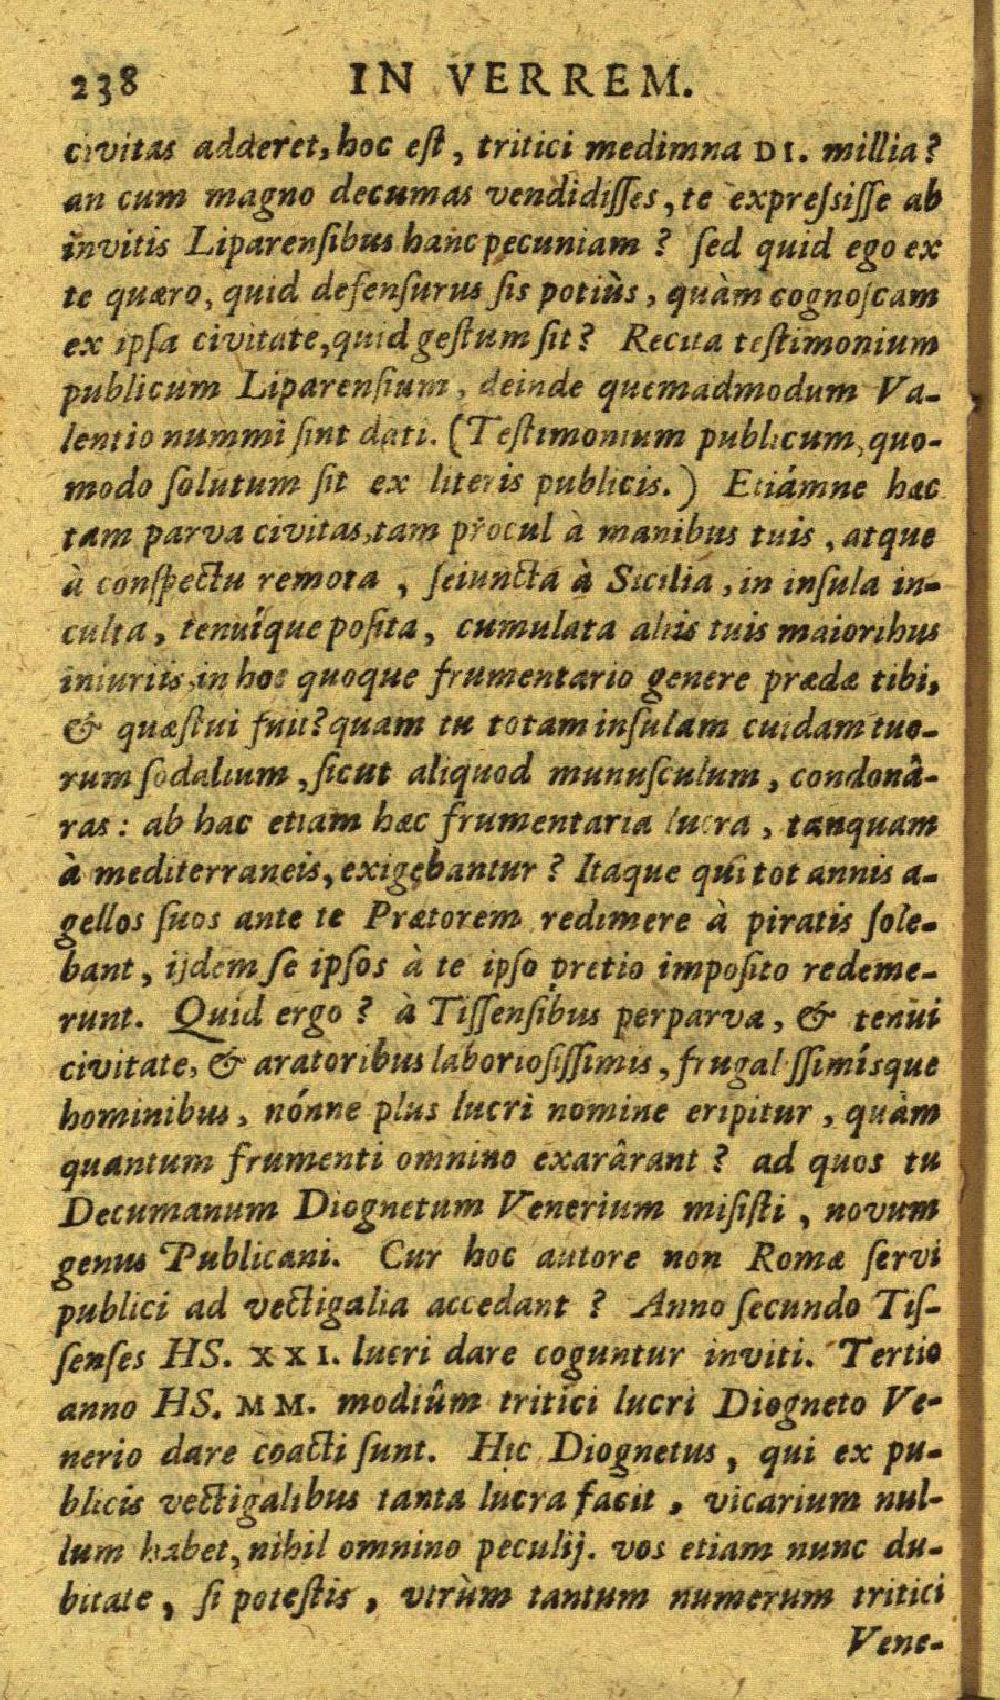 238 IN VERREM.
civitas adderet, hoc eſt, tritici medimna DI. millia?
an cum magno decumas vendidiſſes, te expreſsiſſe ab
invitis Liparenſibus hanc pecuniam? ſed quid ego ex
te quæro, quid defenſurus ſis potiùs, quàm cognoſcam
ex ipſa civitate, quid geſtum ſit? Recita teſtimonium
publicum Liparenſium, deinde quemadmodum Va-
lentio nummi ſint dati. (Teſtimonium publicum, quo-
modo ſolutum ſit ex literis publicis.) Etiámne hæc
tam parva civitas, tam procul à manibus tuis, atque
à conſpectu remota, ſeiuncta à Sicilia, in inſula in-
culta, tenuíque poſita, cumulata aliis tuis maioribus
iniuriis, in hoc quoque frumentario genere prædæ tibi,
& quæſtui fuit? quam tu totam inſulam cuidam tuo-
rum ſodalium, ſicut aliquod munuſculum, condonâ-
ras: ab hac etiam hæc frumentaria lucra, tanquam
à mediterraneis, exigebantur? Itaque qui tot annis a-
gellos ſuos ante te Prætorem redimere à piratis ſole-
bant, ijdem ſe ipſos à te ipſo pretio impoſito redeme-
runt. Quid ergo? à Tiſſenſibus perparva, & tenui
civitate, & aratoribus laborioſiſſimis, frugaliſſimísque
hominibus, nónne plus lucri nomine eripitur, quàm
quantum frumenti omnino exarârant? ad quos tu
Decumanum Diognetum Venerium miſiſti, novum
genus Publicani. Cur hoc autore non Romæ ſervi
publici ad vectigalia accedant? Anno ſecundo Tiſ-
ſenſes HS. XXI. lucri dare coguntur inviti. Tertio
anno HS. MM. modiûm tritici lucri Diogneto Ve-
nerio dare coacti ſunt. Hic Diognetus, qui ex pu-
blicis vectigalibus tanta lucra facit, vicarium nul-
lum habet, nihil omnino peculij. vos etiam nunc du-
bitate, ſi poteſtis, utrùm tantum numerum tritici
Vene-